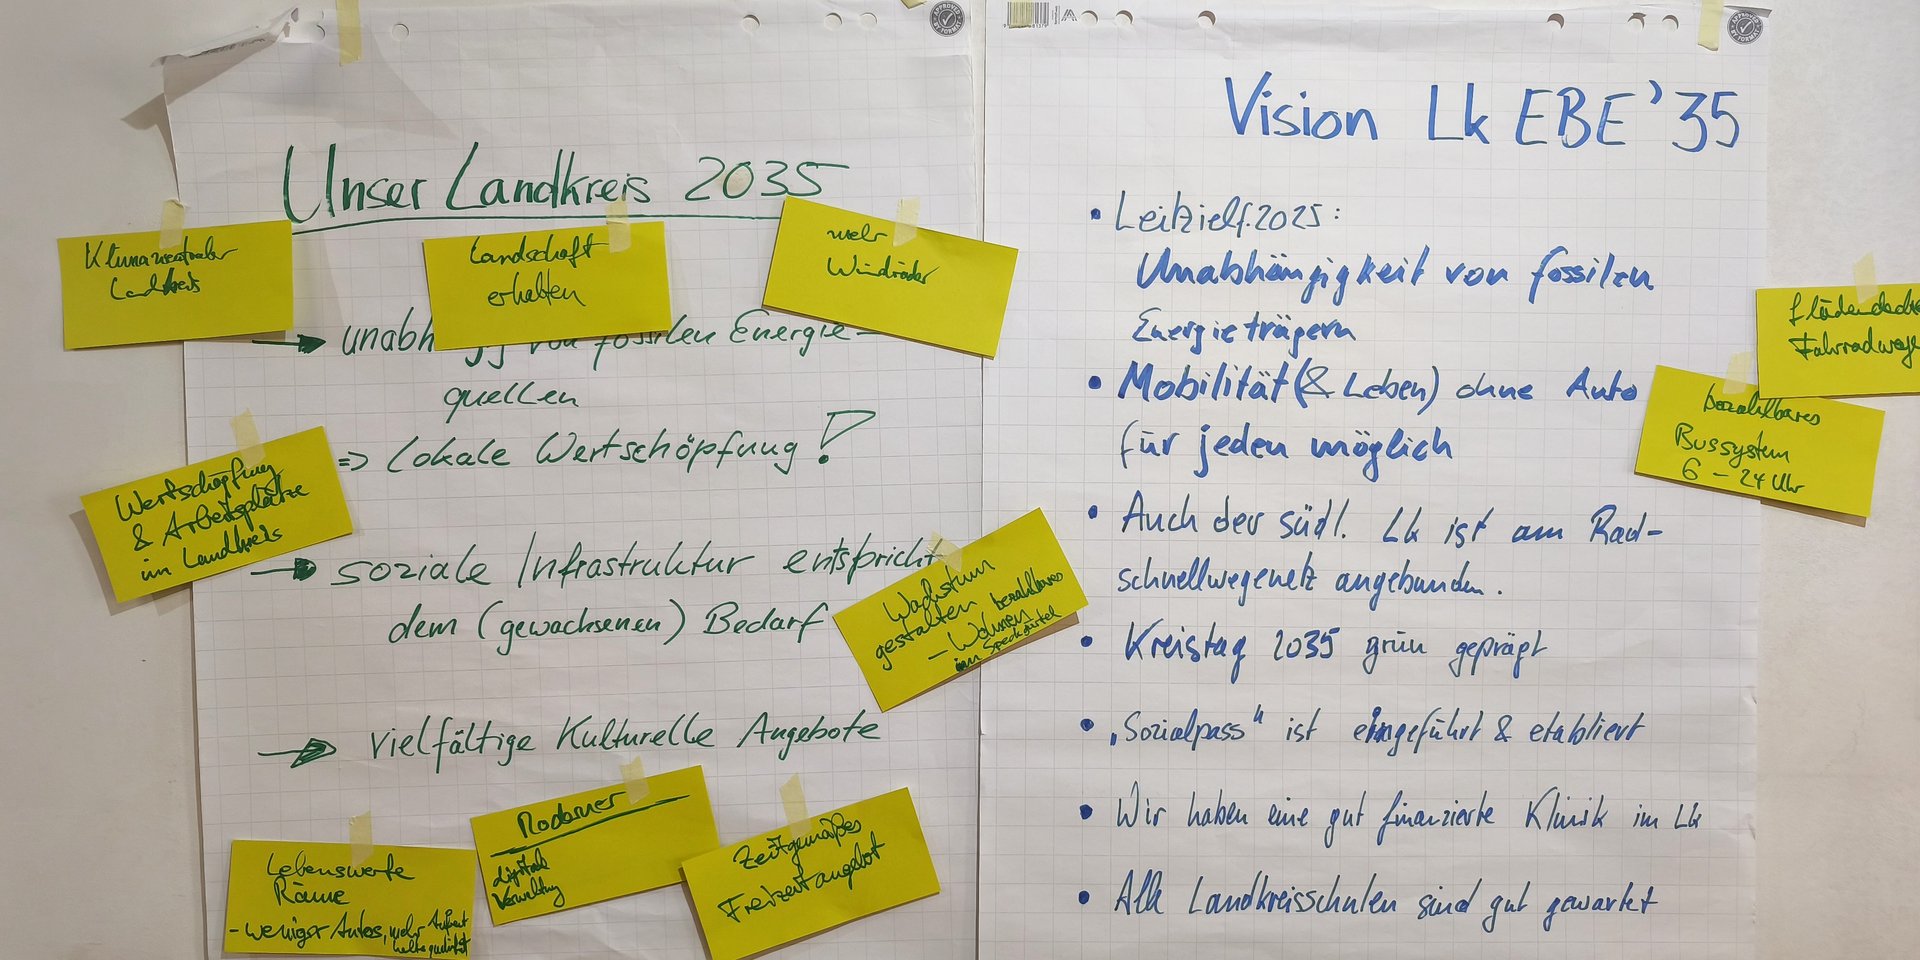 Unser Landkreis 2035
Klimaneutraler
Landkreis
Landschaft
erhalten
mehr
Windräder
→ unabh von fossilen Energie-
quellen
⇒ lokale Wertschöpfung!
Wertschöpfung
& Arbeitsplätze
im Landkreis
→ soziale Infrastruktur entspricht
dem (gewachsenen) Bedarf
Wachstum
gestalten
- bezahlbares
Wohnen
im Speckgürtel
→ vielfältige Kulturelle Angebote
Lebenswerte
Räume
- weniger Autos, mehr
Moderner
digitale
Verwaltung
Zeitgemäßes
Freizeitangebot
Vision Lk EBE '35
• Leitzielf. 2025:
Unabhängigkeit von fossilen
Energieträgern
• Mobilität (& Leben) ohne Auto
für jeden möglich
• Auch der südl. Lk ist am Rad-
schnellwegenetz angebunden.
• Kreistag 2035 grün geprägt
• „Sozialpass“ ist eingeführt & etabliert
• Wir haben eine gut finanzierte Klinik im Lk
• Alle Landkreisschulen sind gut gewartet
Fahrradwege
bezahlbares
Bussystem
6 - 24 Uhr